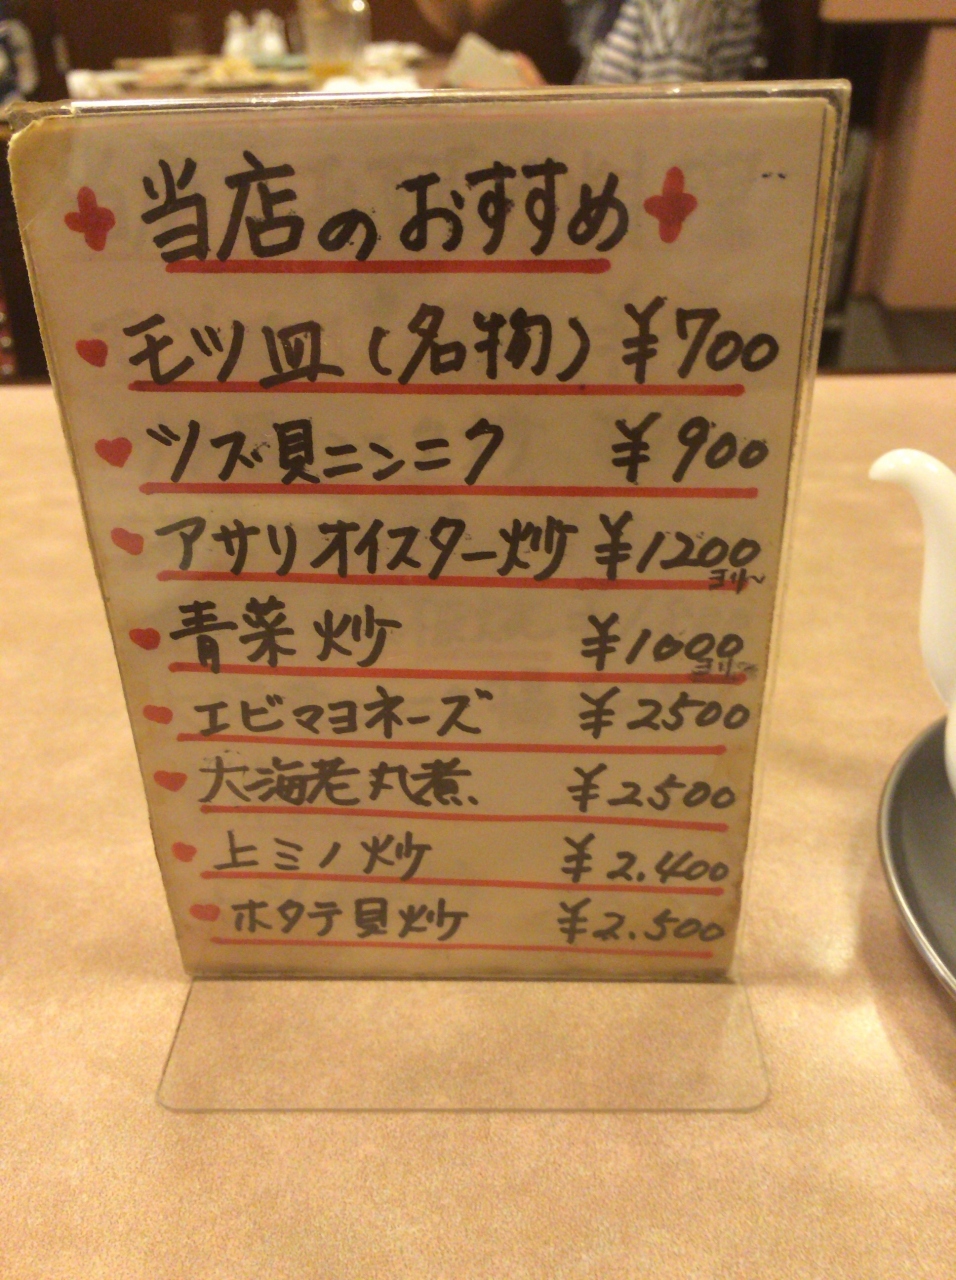 当店のおすすめ
モツ皿(名物) ¥700
ツズ貝ニンニク ¥900
アサリオイスター炒 ¥1200ヨリ〜
青菜炒 ¥1000ヨリ〜
エビマヨネーズ ¥2500
大海老丸煮 ¥2500
上ミノ炒 ¥2.400
ホタテ貝炒 ¥2.500